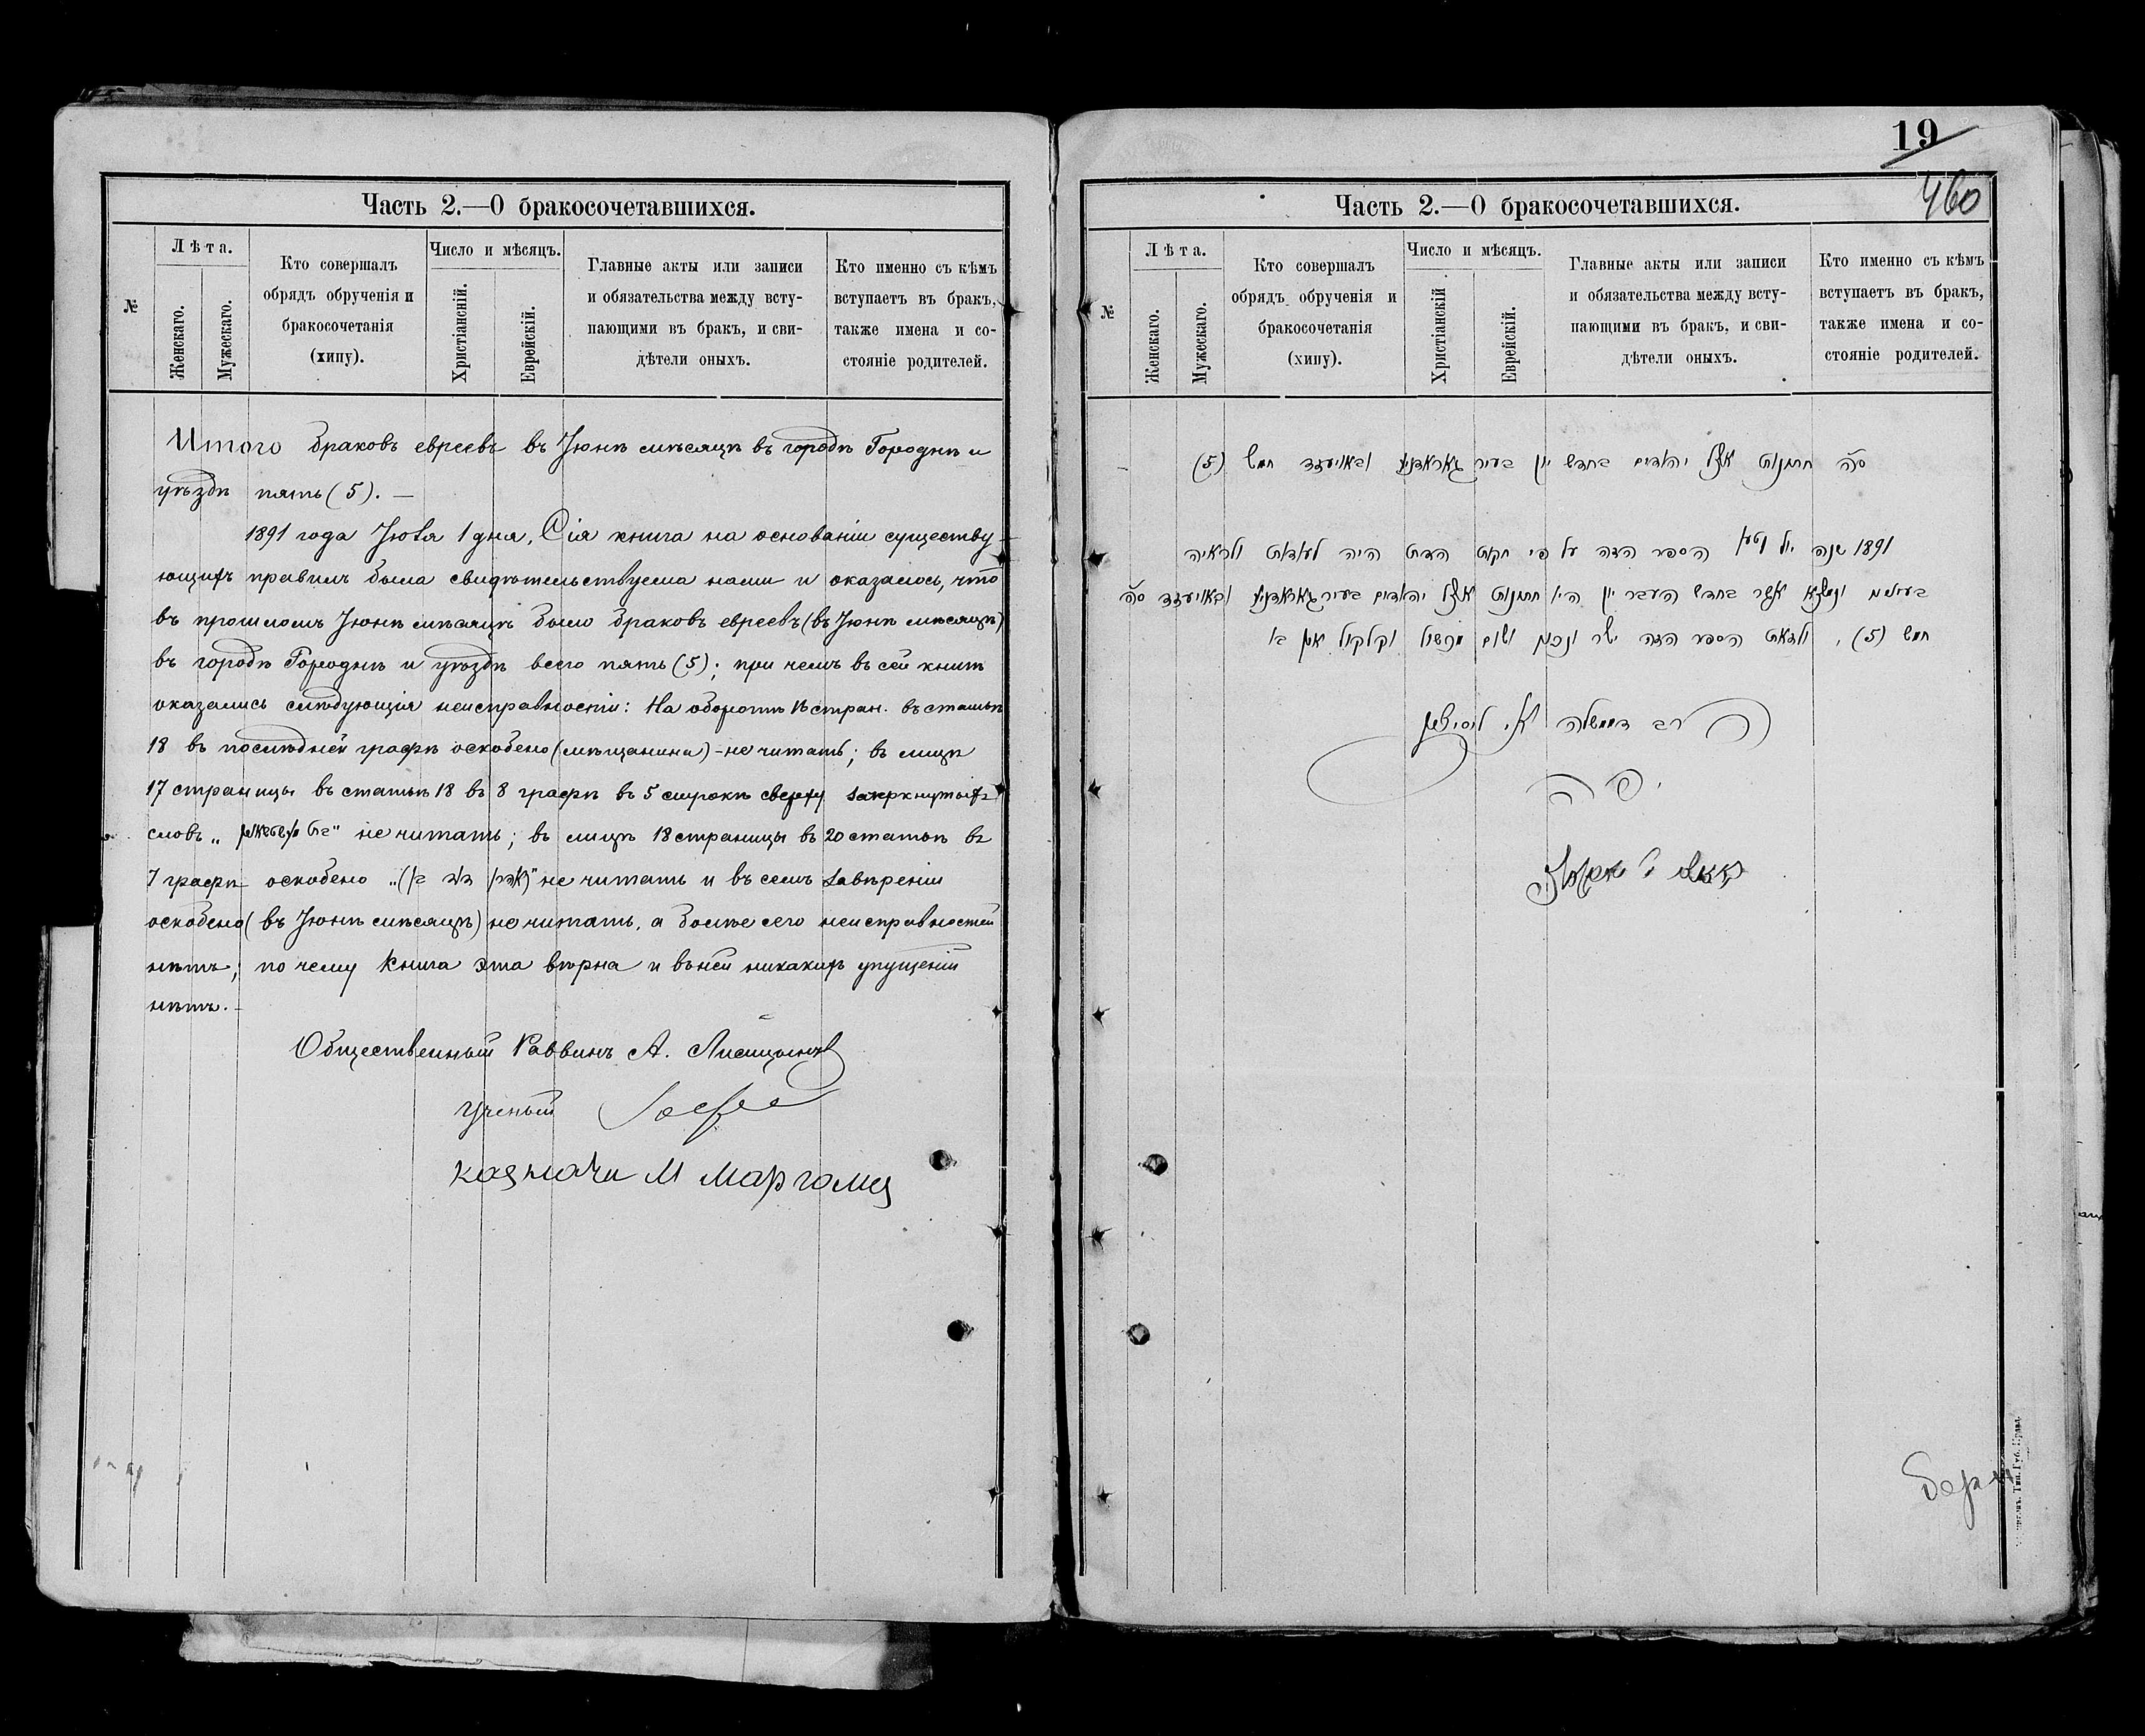 Часть 2.—О бракосочетавшихся.
№
Лѣта.
Женскаго.
Мужескаго.
Кто совершалъ
обрядъ обрученія и
бракосочетанія
(хипу).
Число и мѣсяцъ.
Христіанскій.
Еврейскій.
Главные акты или записи
и обязательства между всту-
пающими въ бракъ, и сви-
дѣтели оныхъ.
Кто именно съ кѣмъ
вступаетъ въ бракъ,
также имена и со-
стояніе родителей.
Итого браковъ евреевъ въ Іюнѣ мѣсяцѣ въ городѣ Городнѣ и
уѣздѣ пять (5). —
1891 года Іюля 1 дня, Сія книга на основаніи существу-
ющихъ правилъ была свидѣтельствуема нами и оказалось, что
въ прошломъ Іюнѣ мѣсяцѣ было браковъ евреевъ (въ Іюнѣ мѣсяцѣ)
въ городѣ Городнѣ и уѣздѣ всего пять (5); при чемъ въ сей книгѣ
оказались слѣдующія неисправности: На оборотѣ стран. въ статьѣ
18 въ послѣдней графѣ оскобено (мѣщанина) - не читать; въ лицѣ
17 страницы въ статьѣ 18 въ 8 графѣ въ 5 строкѣ сверху зачеркнутыхъ
словъ „ " не читать; въ лицѣ 18 страницы въ 20 статьѣ въ
7 графѣ оскобено „ " не читать и въ семъ завѣреніи
оскобено (въ Іюнѣ мѣсяцѣ) не читать, а болѣе сего неисправностей
нѣтъ; по чему книга эта вѣрна и въ ней никакихъ упущеній
нѣтъ. —
Общественный Раввинъ А. Лисицынъ
ученый
казначи М Марголис
19
460
Часть 2.—О бракосочетавшихся.
№
Лѣта.
Женскаго.
Мужескаго.
Кто совершалъ
обрядъ обрученія и
бракосочетанія
(хипу).
Число и мѣсяцъ.
Христіанскій
Еврейскій.
Главные акты или записи
и обязательства между всту-
пающими въ бракъ, и сви-
дѣтели оныхъ.
Кто именно съ кѣмъ
вступаетъ въ бракъ,
также имена и со-
стояніе родителей.
ס״ה חתונות אצל יהודים בחדש יון בעיר גאראדניא ובאויעזד חמש (5)
1891 שנה יול הספר הזה על פי חקות הדת היה לעדות ולראיה
ונמצא אשר בחדש העבר יון היו חתונות אצל יהודים בעיר גאראדניא ובאויעזד ס״ה
חמש (5). ולזאת הספר הזה ישר ונכון ושום מכשול וקלקול אין בו
הרב דממשלה א. ליסיצין